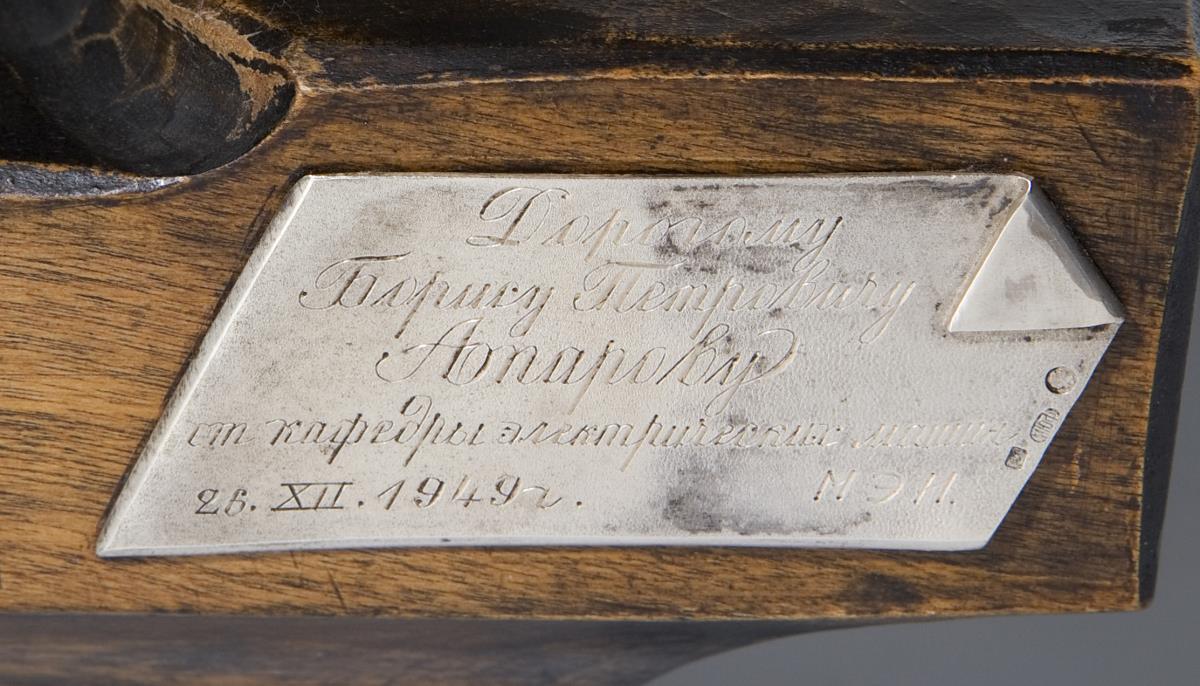 Дорогому
Борису Петровичу
Апарову
от кафедры электрических машин
28. XII. 1949 г.
М Э И.